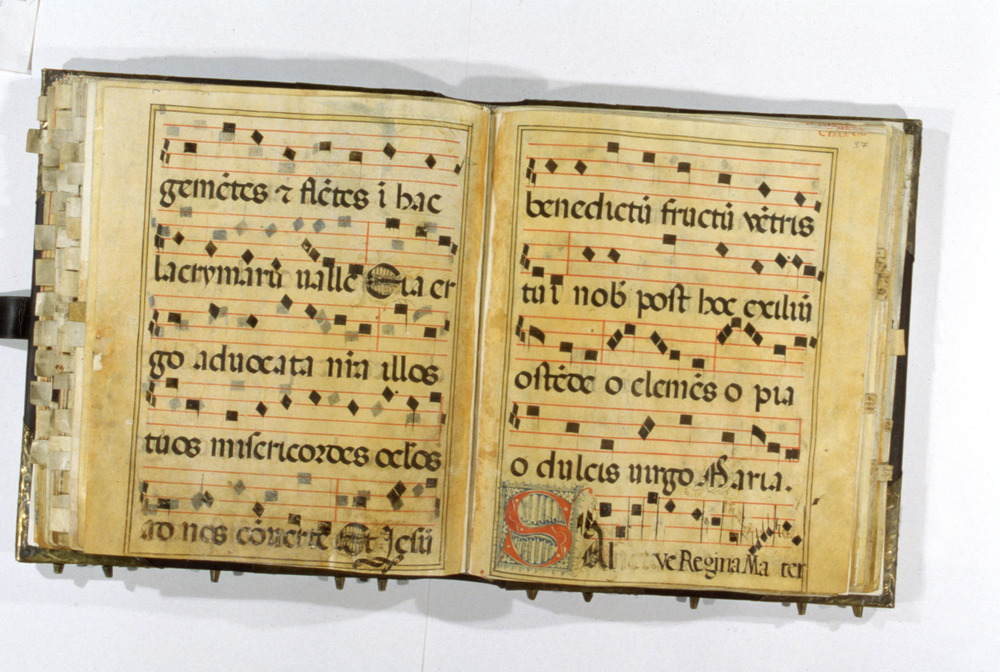 gemētes ⁊ flētes ī hac
lacrymarū ualle Eia er
go aduocata nr̄a illos
tuos misericordes oc̄l̄os
ad nos cōuerte Et Jesū
benedictū fructū vētris
tui nob̄ post hoc exiliū
ostēde o clemēs o pia
o dulcis uirgo Maria.
SAl ve Regina Ma ter
97